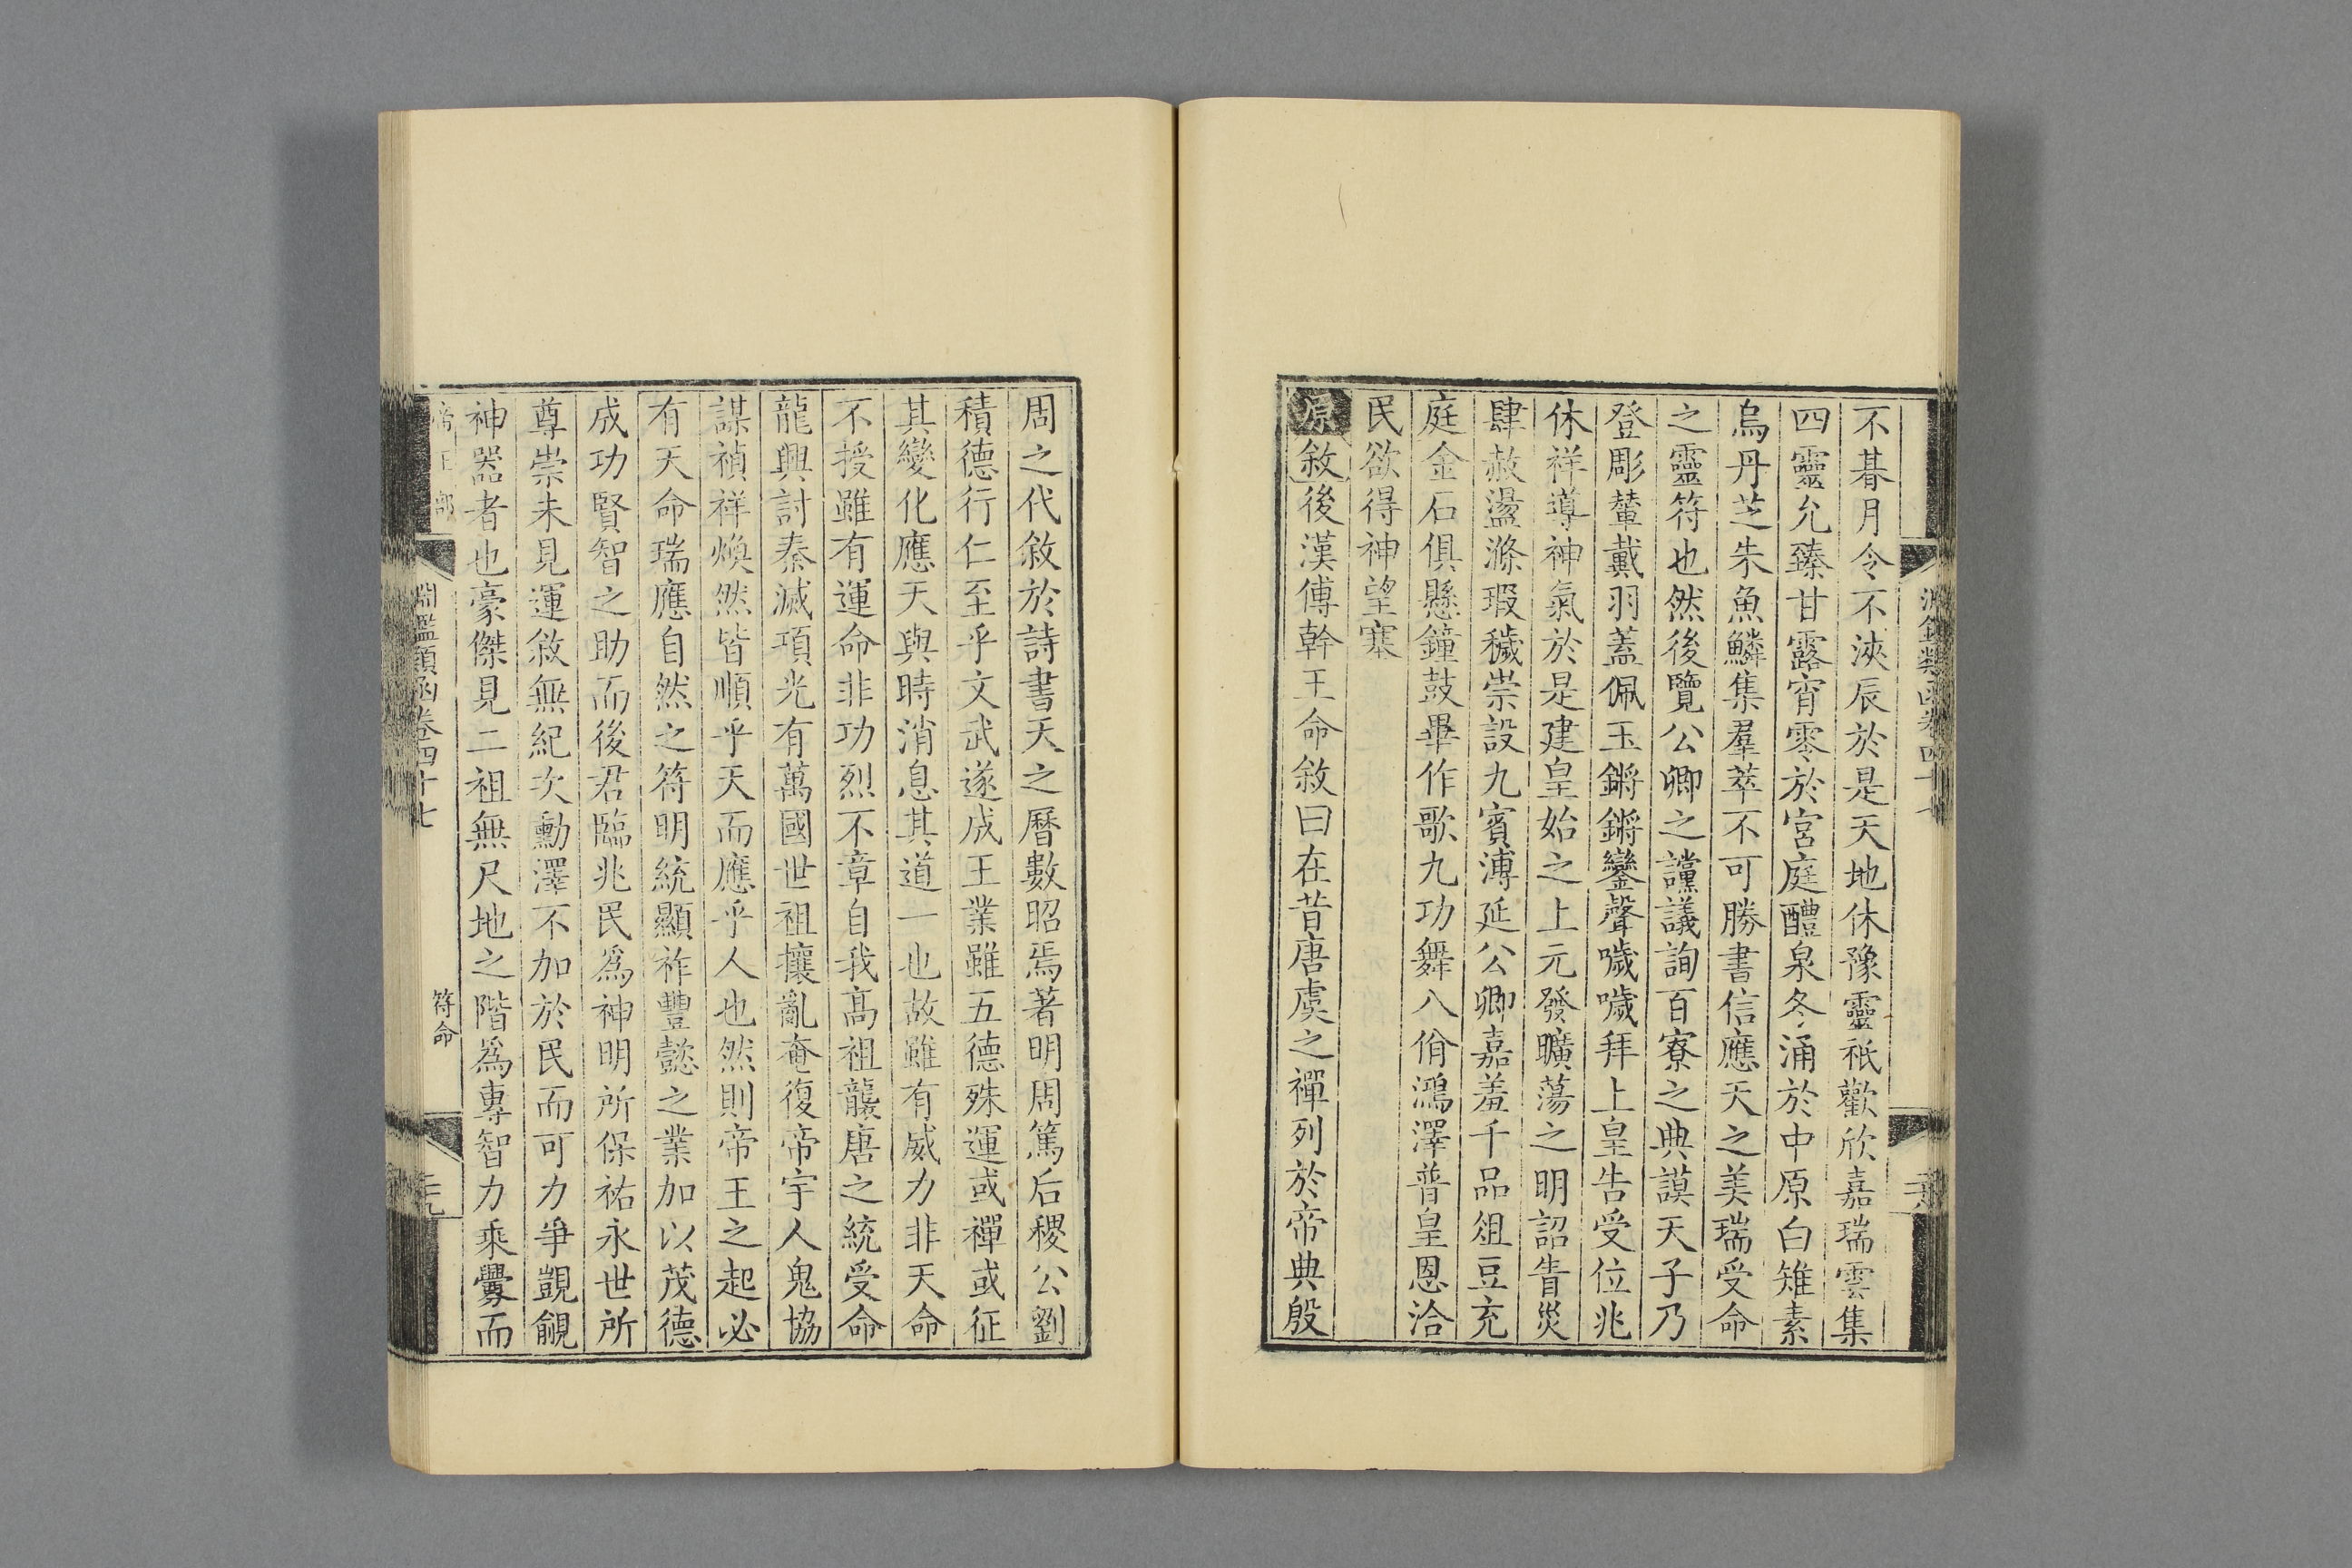 淵鑑類函卷四十七
不朞月令不浹辰於是天地休豫靈祇歡欣嘉瑞雲集
四靈允臻甘露宵零於宮庭醴泉冬涌於中原白雉素
烏丹芝朱魚鱗集羣萃不可勝書信應天之美瑞受命
之靈符也然後覽公卿之讜議詢百寮之典謨天子乃
登彫輦戴羽蓋佩玉鏘鏘鑾聲噦噦拜上皇告受位兆
休祥導神氣於是建皇始之上元發曠蕩之明詔眚災
肆赦盪滌瑕穢崇設九賓溥延公卿嘉羞千品俎豆充
庭金石俱懸鐘鼓畢作歌九功舞八佾鴻澤普皇恩洽
民欲得神望塞
原敘後漢傅幹王命敘曰在昔唐虞之禪列於帝典殷
周之代敘於詩書天之曆數昭焉著明周篤后稷公劉
積德行仁至乎文武遂成王業雖五德殊運或禪或征
其變化應天與時消息其道一也故雖有威力非天命
不授雖有運命非功烈不章自我高祖襲唐之統受命
龍興討秦滅項光有萬國世祖攘亂奄復帝宇人鬼協
謀禎祥煥然皆順乎天而應乎人也然則帝王之起必
有天命瑞應自然之符明統顯祚豐懿之業加以茂德
成功賢智之助而後君臨兆民爲神明所保祐永世所
尊崇未見運敘無紀次勳澤不加於民而可力爭覬覦
神器者也豪傑見二祖無尺地之階爲專智力乘釁而
帝王部
淵鑑類函卷四十七
符命